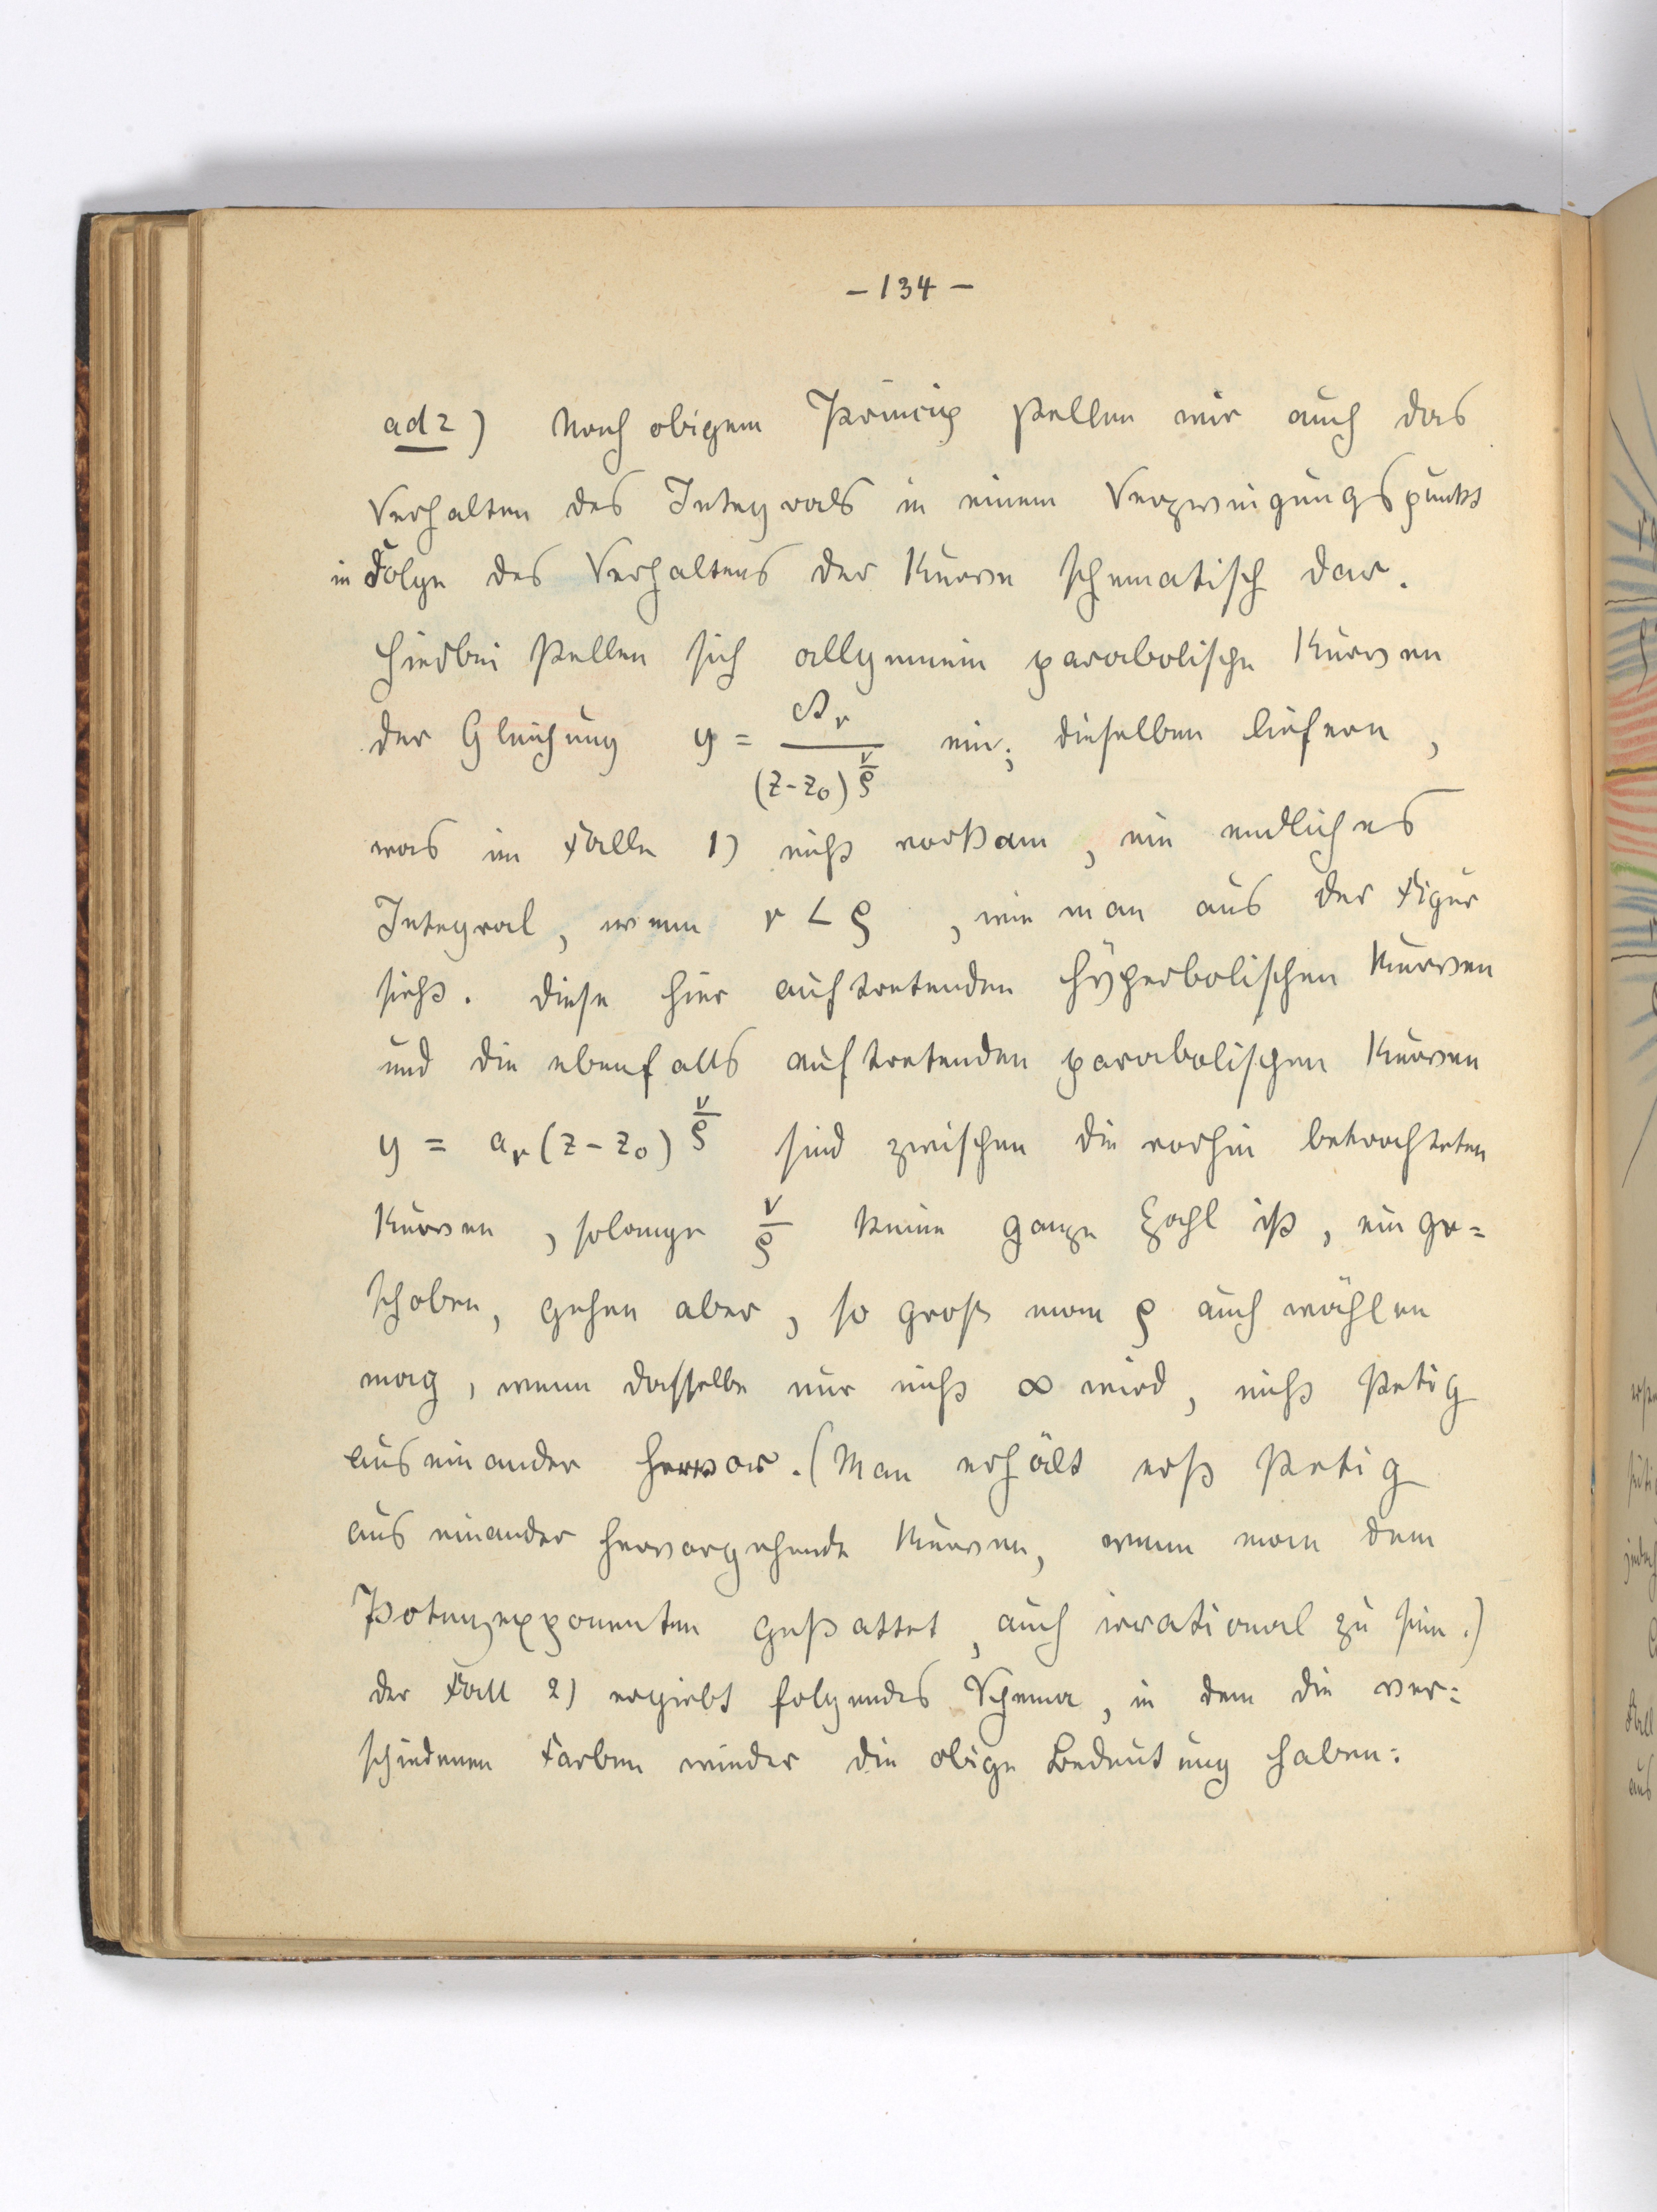 - 134 -
ad 2) Nach obigem Princip stellen wir auch das
Verhalten des Integrals in einem Verzweigungspunkt
in Folge des Verhaltens der Kurve schematisch dar.
Hierbei stellen sich allgemein parabolische Kurven
der Gleichung y = \frac{A_r}{(z-z_0)^{\frac{ν}{ρ}}} ein; dieselben liefern,
was im Falle 1) nicht vorkam, ein endliches
Integral, wenn r < ρ, wie man aus der Figur
sieht. Diese hier auftretenden hyperbolischen Kurven
und die ebenfalls auftretenden parabolischen Kurven
y = a_r (z-z_0)^{\frac{ν}{ρ}} sind zwischen die vorhin betrachteten
Kurven, solange \frac{ν}{ρ} keine ganze Zahl ist, einge=
schoben, gehen aber, so groß man ρ auch wählen
mag, wenn dasselbe nur nicht ∞ wird, nicht stetig
aus einander hervor. (Man erhält erst stetig
aus einander hervorgehende Kurven, wenn man dem
Potenzexponenten gestattet, auch irrational zu sein.)
Der Fall 2) ergiebt folgendes Schema, in dem die ver=
schiedenen Farben wieder die obige Bedeutung haben: